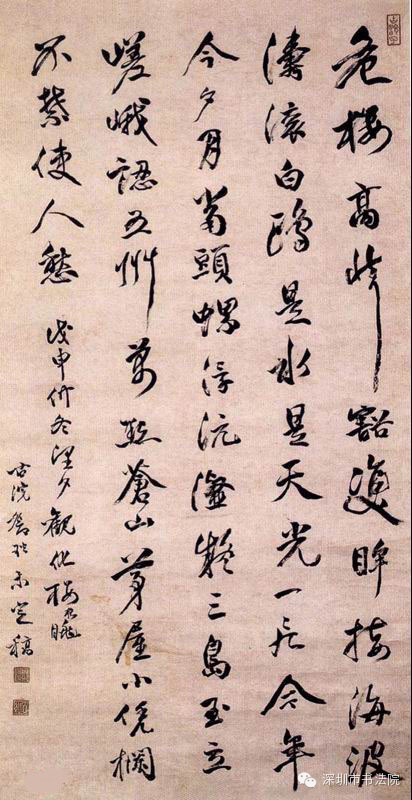 危樓高峙豁雙眸接海波
濤滾白鷗是水是天光一片今年
今夕月當頭螺浮沆瀣凝三島玉立
嵯峨認五州萬點蒼山茅屋小凭欄
不禁使人愁 戊申仲冬望夕觀化樓眺
古浣鄧未定稿
深圳市书法院